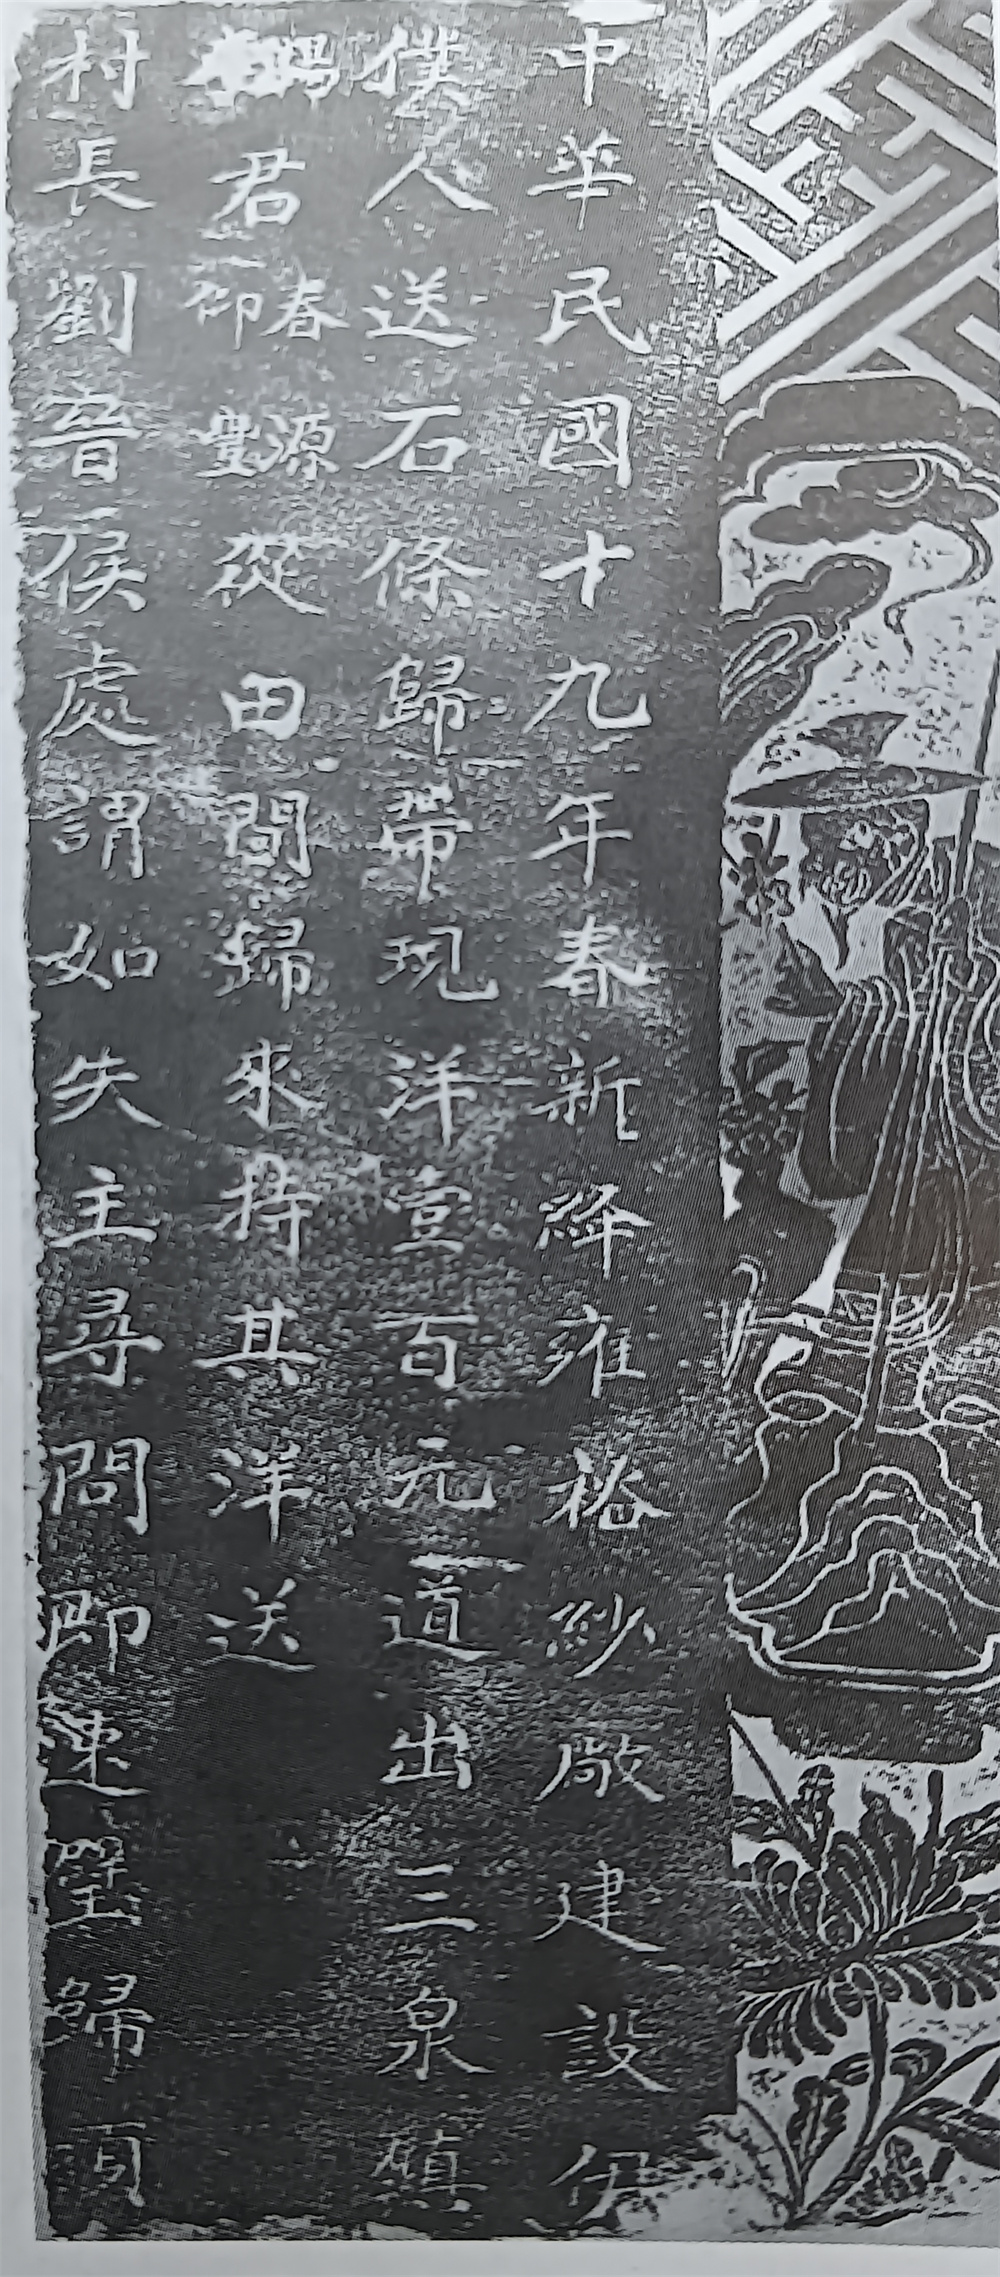 中華民國十九年春新絳雍裕紗廠建設伊
僕人送石條歸帶現洋壹百元道出三泉鎮
君春源仰豐從田間歸來持其洋送
村長劉晉侯處謂如失主尋問即速璧歸頃